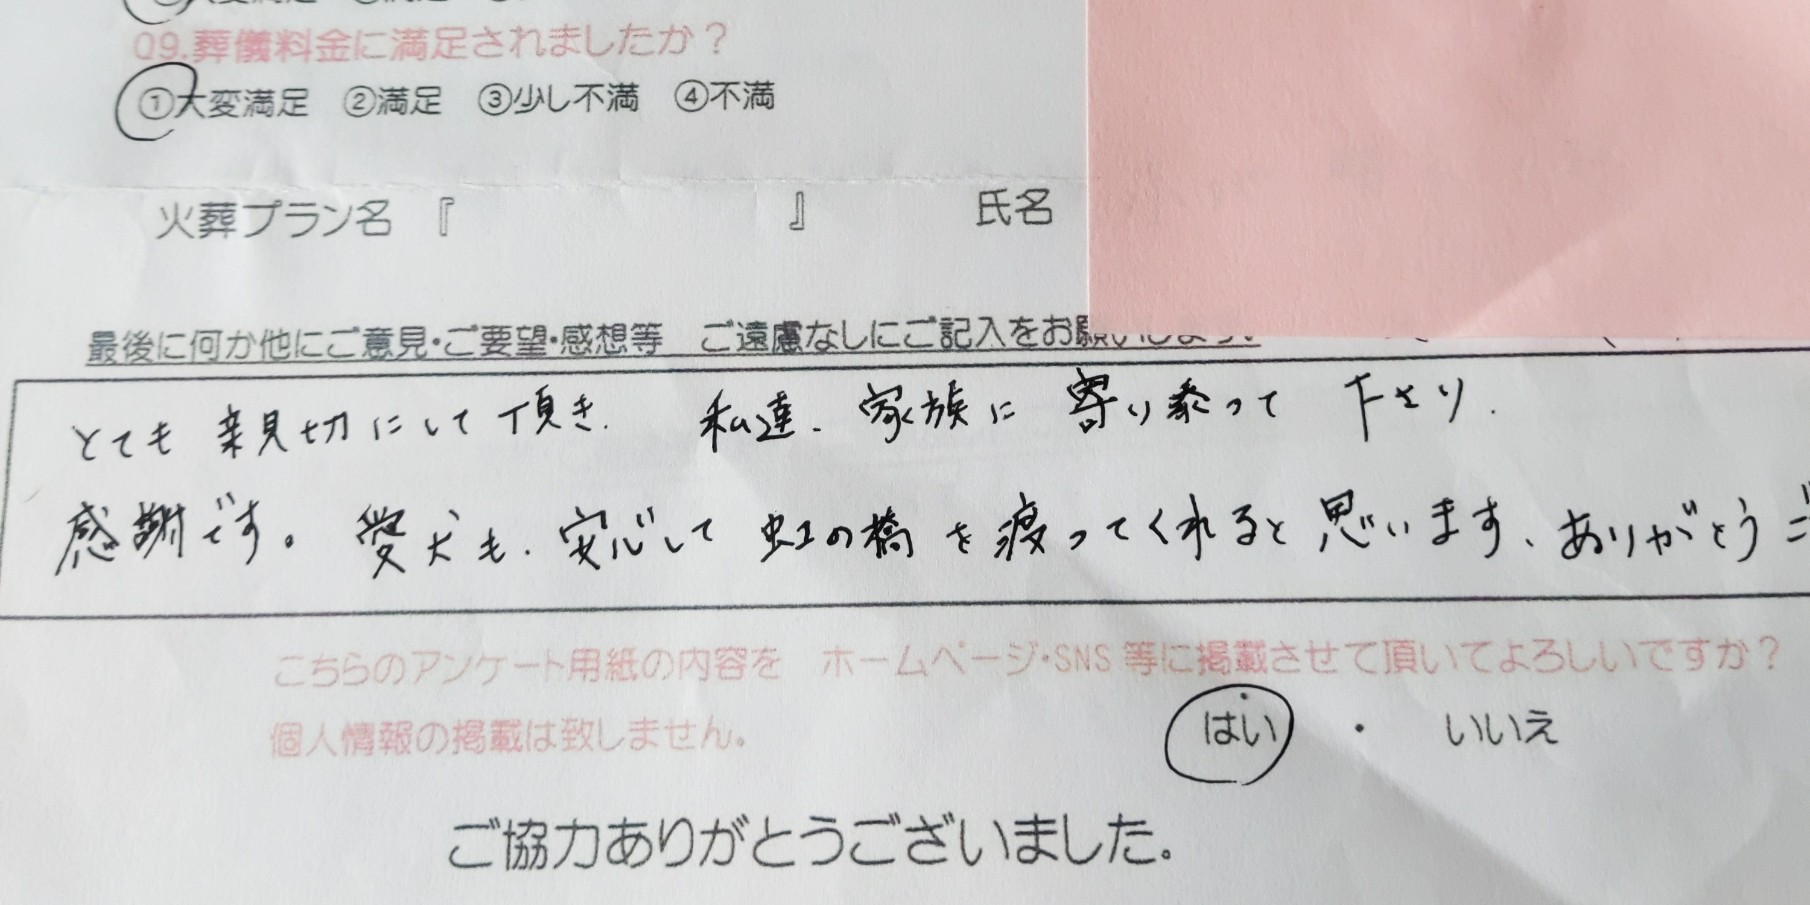 Q9.葬儀料金に満足されましたか？
①大変満足　②満足　③少し不満　④不満
火葬プラン名『　　　　　』　氏名
最後に何か他にご意見・ご要望・感想等　ご遠慮なしにご記入をお願いします。
とても親切にして頂き、私達、家族に寄り添って下さり、
感謝です。愛犬も、安心して虹の橋を渡ってくれると思います、ありがとうご
こちらのアンケート用紙の内容を　ホームページ・SNS等に掲載させて頂いてよろしいですか？
個人情報の掲載は致しません。
はい　・　いいえ
ご協力ありがとうございました。